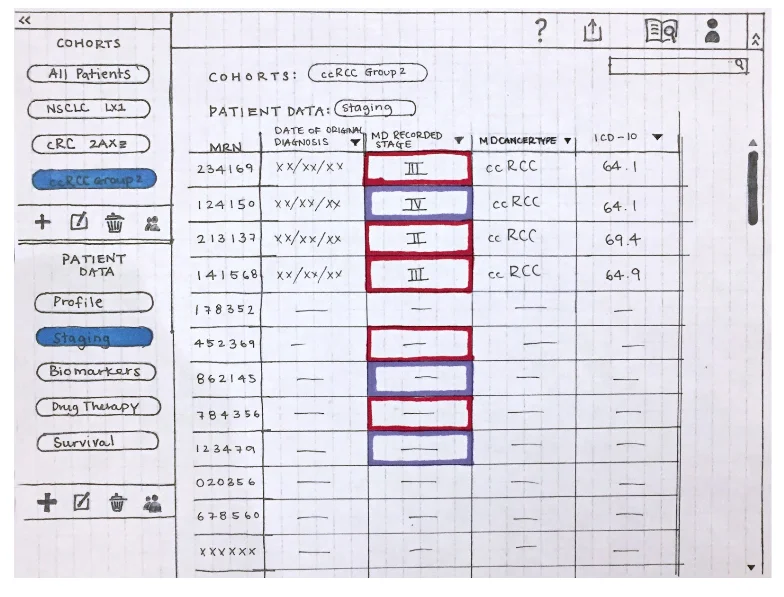 <<
?
COHORTS
All Patients
NSCLC LX1
CRC 2AX2
ccRCC Group 2
PATIENT
DATA
Profile
Staging
Biomarkers
Drug Therapy
Survival
COHORTS: ccRCC Group 2
PATIENT DATA: Staging
MRN DATE OF ORIGINAL DIAGNOSIS MD RECORDED STAGE MD CANCER TYPE ICD-10
234169 xx/xx/xx III ccRCC 64.1
124150 xx/xx/xx IV ccRCC 64.1
213137 xx/xx/xx II ccRCC 69.4
141568 xx/xx/xx III ccRCC 64.9
178352 — — — —
452369 — — — —
862145 — — — —
784356 — — — —
123479 — — — —
020856 — — — —
678560 — — — —
xxxxxx — — — —